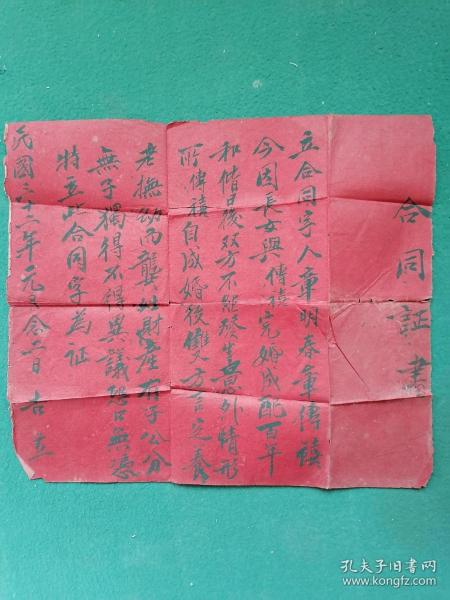 合同証書
立合同字人章明春章傳禎
今因長女與傳禎完婚成配百年
和偕日後双方不能發生意外情形
所傳禎自成婚後雙方言定養
老撫幼而襲此財產有子公分
無子獨得不得異議恐口無憑
特立此合同字為証
民國三十二年元月念二日吉立
孔夫子旧书网
www.kongfz.com